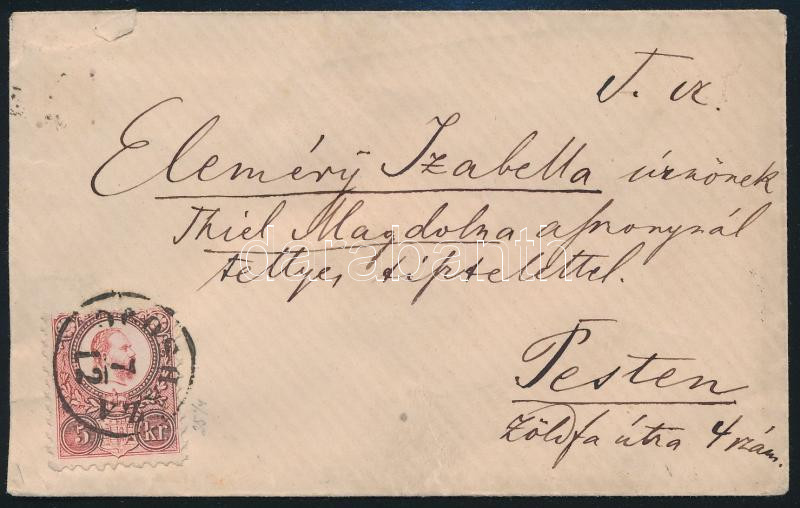 T. cz.
Eleméry Izabella úrnőnek
Thiel Magdolna asszonynál
tettyes tisztelettel.
Pesten
Zöldfa útza 4 szám.
darabanth
5 kr
7
12
25/4